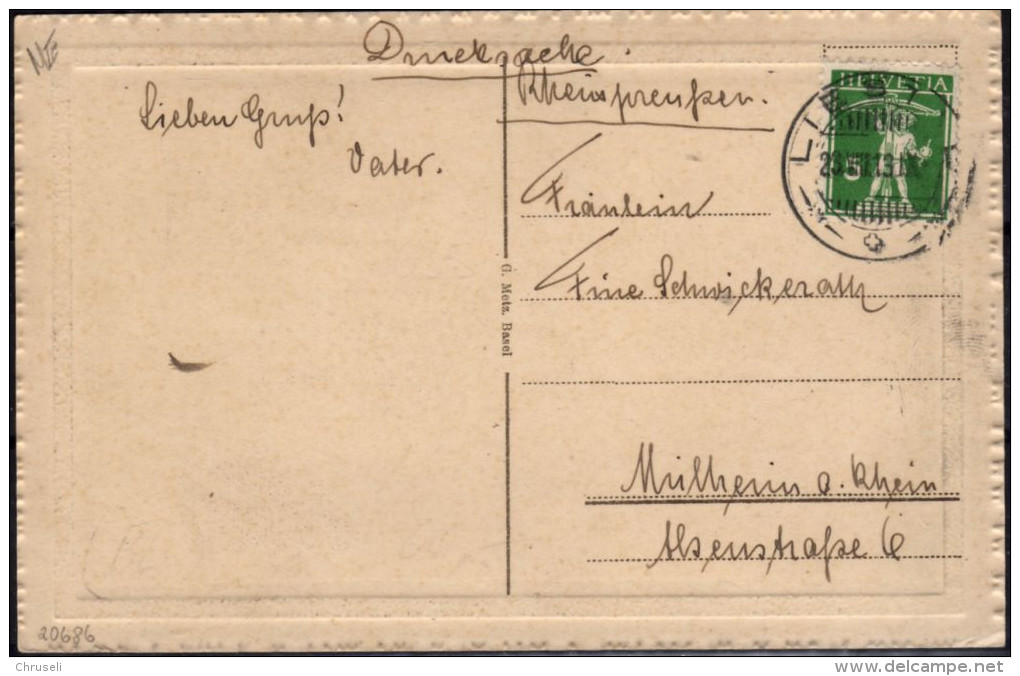 Drucksache.
Rheinpreußen.
Lieben Gruß!
Vater.
HELVETIA
5
LIEST
23.VIII.13.IX
Fräulein
Fine Schwickerath
G. Metz. Basel
Mülheim a. Rhein
Alsenstraße 6
20686
Chruseli
www.delcampe.net